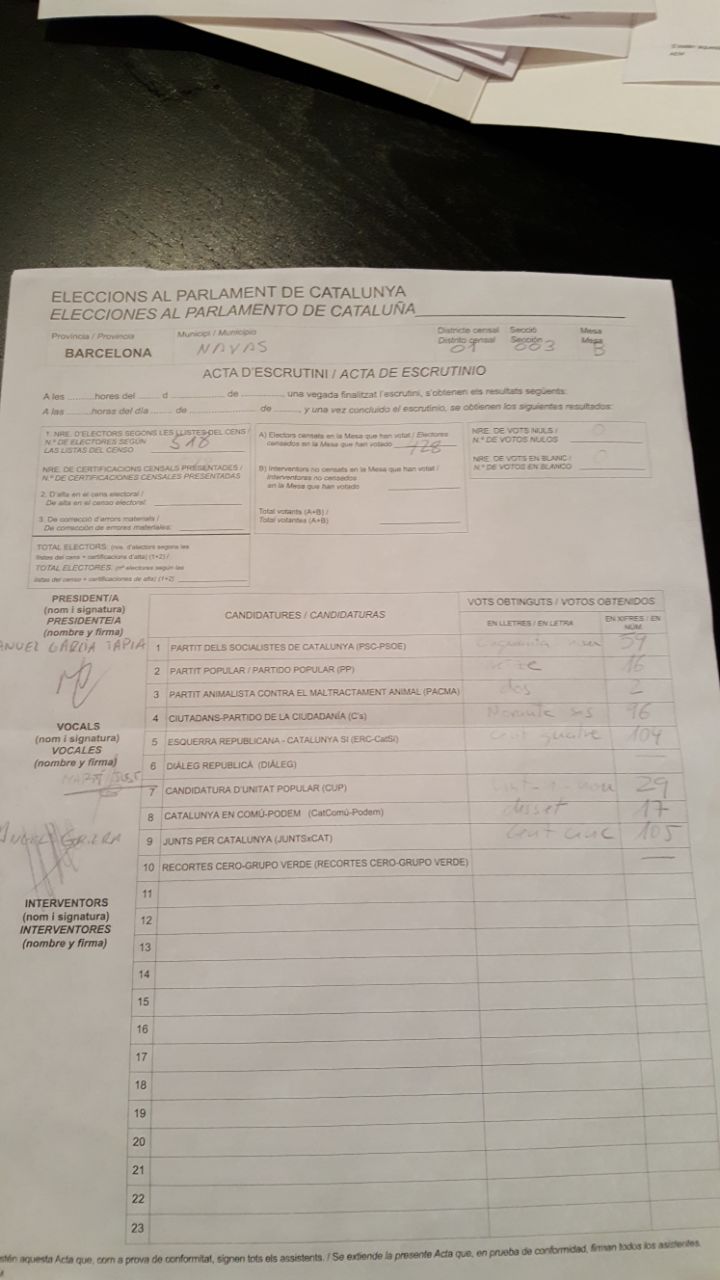 ELECCIONS AL PARLAMENT DE CATALUNYA
ELECCIONES AL PARLAMENTO DE CATALUÑA
Provincia / Provincia
Municipi / Municipio
Districte censal
Secció
Mesa
BARCELONA
NAVAS
Distrito censal
01
Sección
003
Mesa
B
ACTA D'ESCRUTINI / ACTA DE ESCRUTINIO
A les ......... hores del ...... d ............ de ............, una vegada finalitzat l'escrutini, s'obtenen els resultats següents:
A las ......... horas del día ...... de ............ de ............, y una vez concluido el escrutinio, se obtienen los siguientes resultados:
1. NRE. D'ELECTORS SEGONS LES LLISTES DEL CENS /
N.º DE ELECTORES SEGÚN
LAS LISTAS DEL CENSO
518
NRE. DE CERTIFICACIONS CENSALS PRESENTADES /
N.º DE CERTIFICACIONES CENSALES PRESENTADAS
2. D'alta en el cens electoral /
De alta en el censo electoral:
3. De correcció d'errors materials /
De corrección de errores materiales:
TOTAL ELECTORS: (nre. d'electors segons les
llistes del cens + certificacions d'alta) (1+2) /
TOTAL ELECTORES: (nº electores según las
listas del censo + certificaciones de alta) (1+2)
A) Electors censats en la Mesa que han votat / Electores
censados en la Mesa que han votado
428
B) Interventors no censats en la Mesa que han votat /
Interventores no censados
en la Mesa que han votado
Total votants (A+B) /
Total votantes (A+B)
NRE. DE VOTS NULS /
N.º DE VOTOS NULOS
0
NRE. DE VOTS EN BLANC /
N.º DE VOTOS EN BLANCO
0
PRESIDENT/A
(nom i signatura)
PRESIDENTE/A
(nombre y firma)
ANUEL GARCÍA TAPIA
VOCALS
(nom i signatura)
VOCALES
(nombre y firma)
INTERVENTORS
(nom i signatura)
INTERVENTORES
(nombre y firma)
CANDIDATURES / CANDIDATURAS
VOTS OBTINGUTS / VOTOS OBTENIDOS
EN LLETRES / EN LETRA
EN XIFRES / EN NÚM.
1 PARTIT DELS SOCIALISTES DE CATALUNYA (PSC-PSOE) 59
2 PARTIT POPULAR / PARTIDO POPULAR (PP) setze 16
3 PARTIT ANIMALISTA CONTRA EL MALTRACTAMENT ANIMAL (PACMA) dos 2
4 CIUTADANS-PARTIDO DE LA CIUDADANÍA (C's) Noranta sis 96
5 ESQUERRA REPUBLICANA - CATALUNYA SI (ERC-CatSI) cent quatre 104
6 DIÀLEG REPUBLICÀ (DIÀLEG) —
7 CANDIDATURA D'UNITAT POPULAR (CUP) vint-i-nou 29
8 CATALUNYA EN COMÚ-PODEM (CatComú-Podem) disset 17
9 JUNTS PER CATALUNYA (JUNTSxCAT) cent cinc 105
10 RECORTES CERO-GRUPO VERDE (RECORTES CERO-GRUPO VERDE) —
11
12
13
14
15
16
17
18
19
20
21
22
23
stén aquesta Acta que, com a prova de conformitat, signen tots els assistents. / Se extiende la presente Acta que, en prueba de conformidad, firman todos los asistentes.